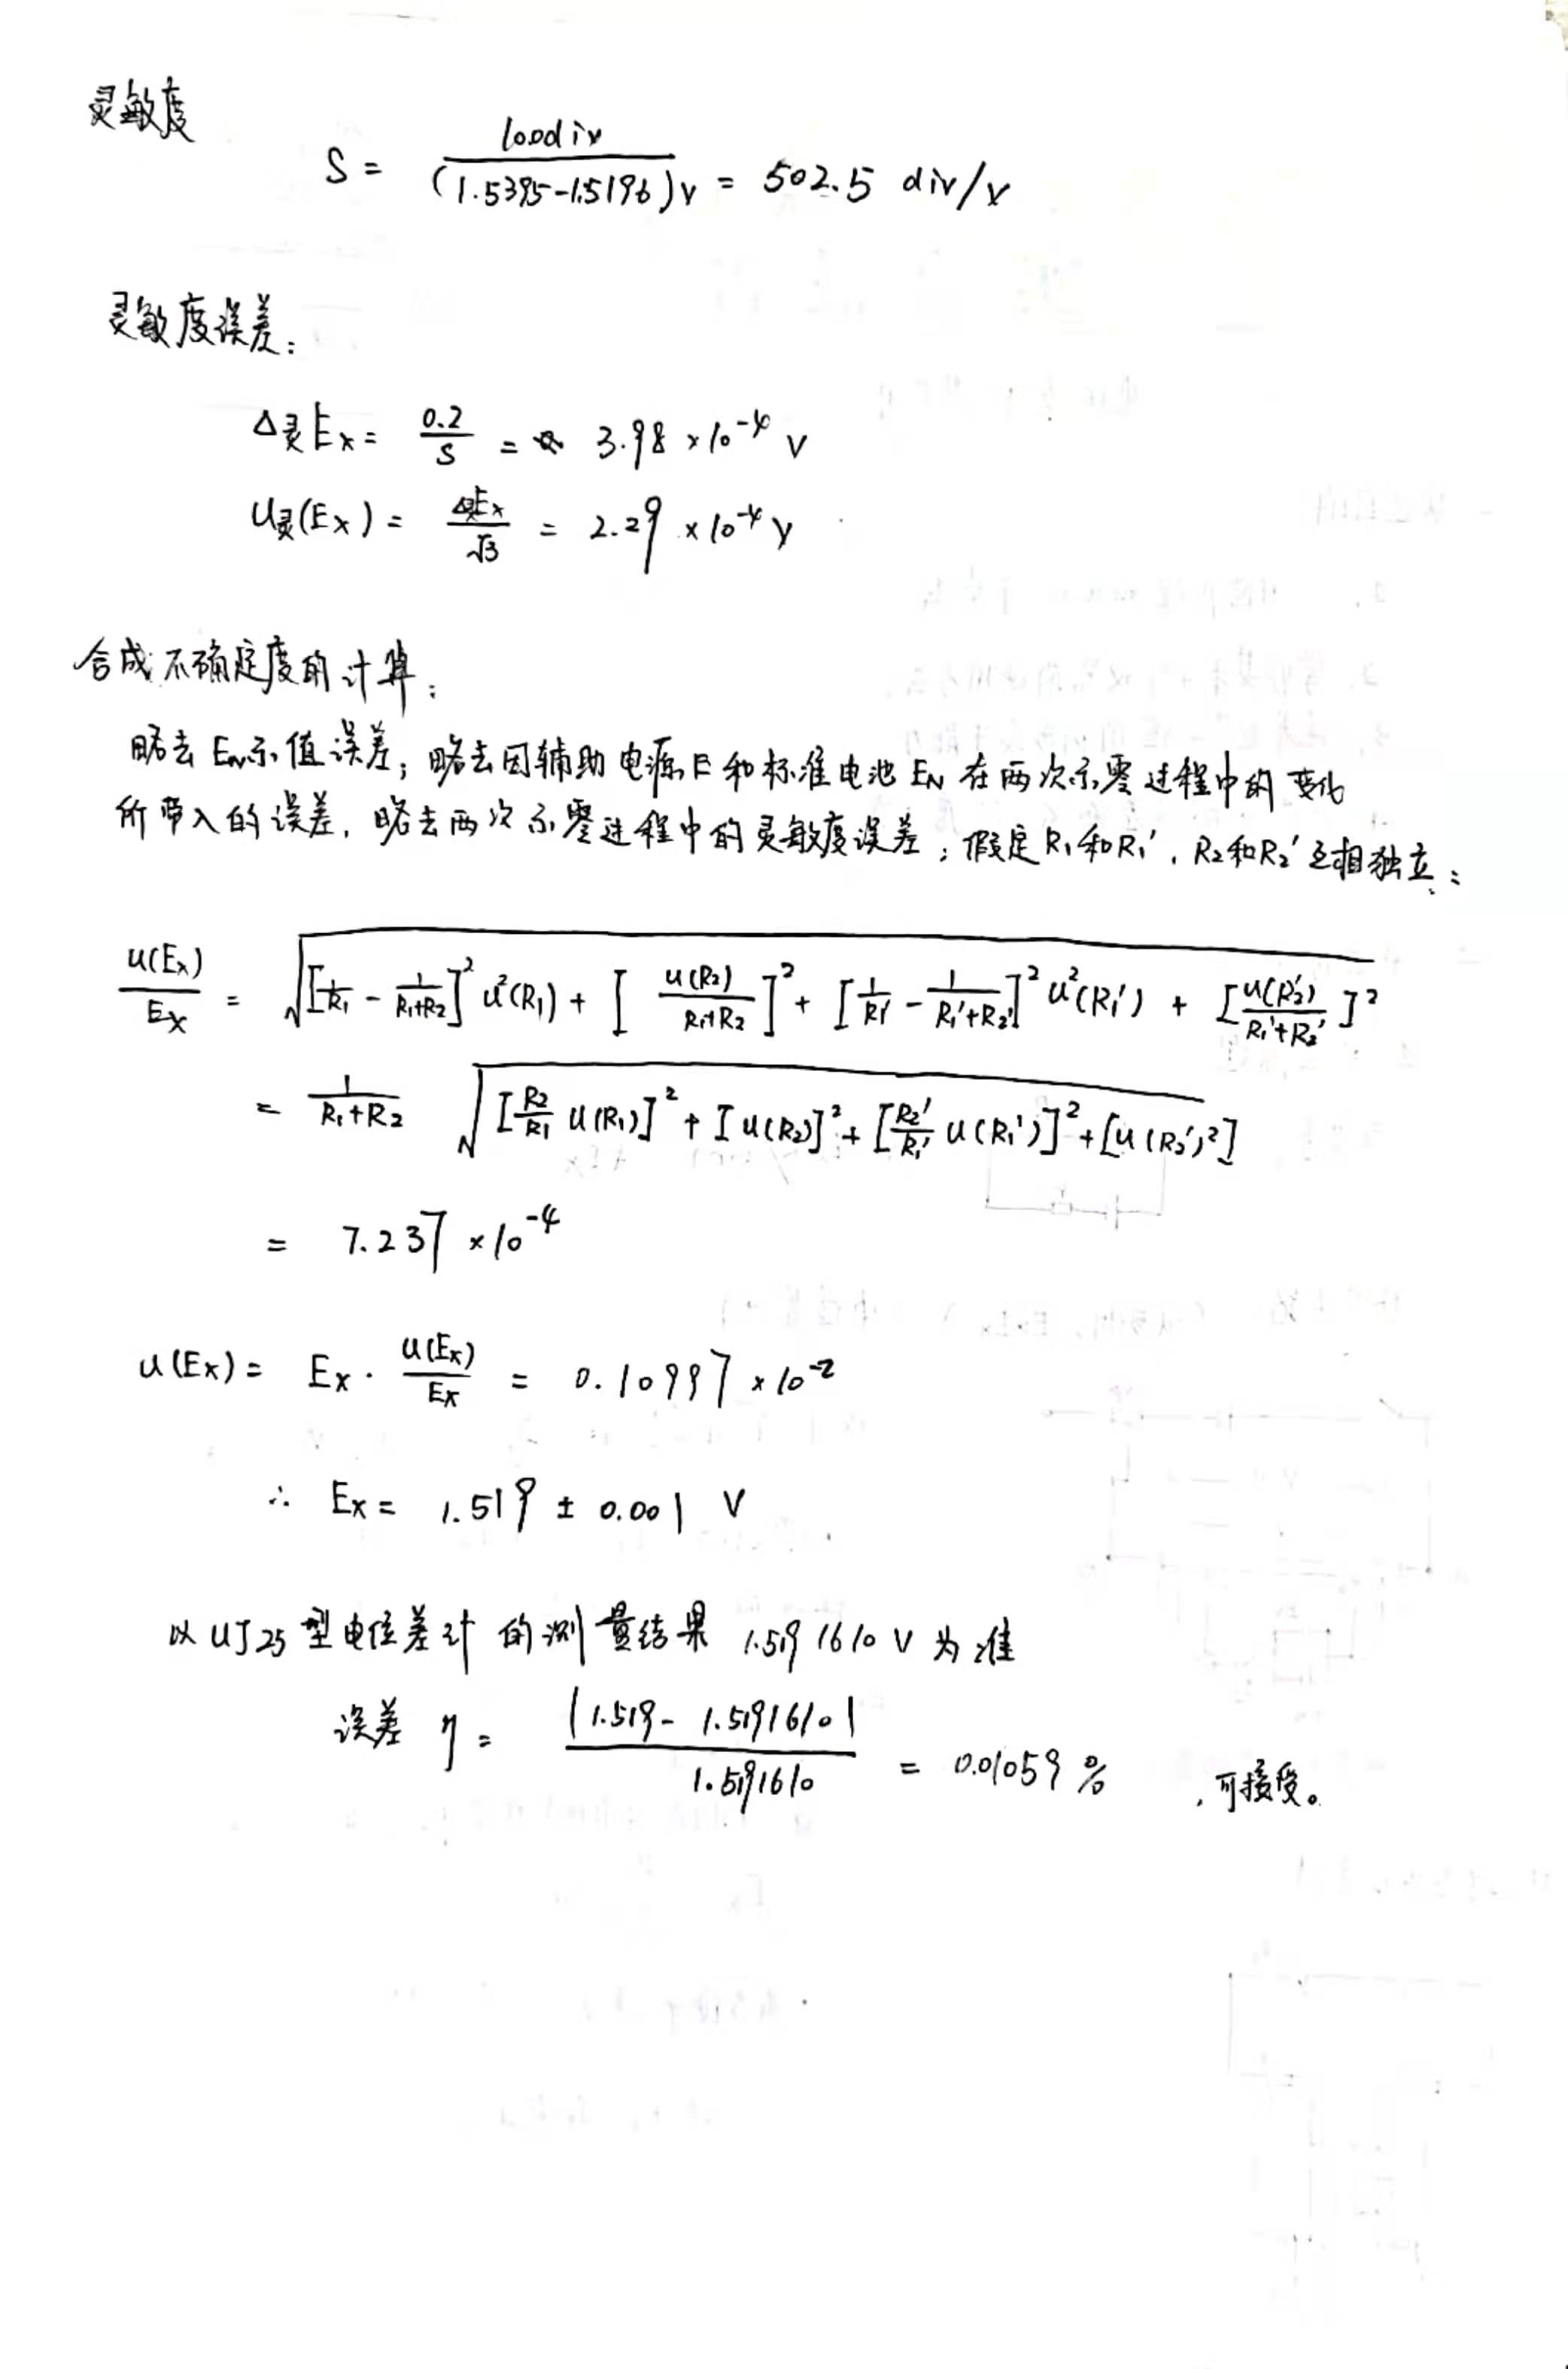 灵敏度
S = 100div / (1.5395-1.5196)V = 502.5 div/V
灵敏度误差:
Δ灵Ex = 0.2/S = 3.98 ×10⁻⁴ V
U灵(Ex) = Δ灵Ex/√3 = 2.29 ×10⁻⁴ V
合成不确定度的计算:
略去EN示值误差; 略去因辅助电源E和标准电池EN在两次示零过程中的变化
所带入的误差, 略去两次示零过程中的灵敏度误差; 假定R₁和R₁', R₂和R₂'互相独立:
u(Ex)/Ex = √([1/R₁ - 1/(R₁+R₂)]² u²(R₁) + [u(R₂)/(R₁+R₂)]² + [1/R₁' - 1/(R₁'+R₂')]² u²(R₁') + [u(R₂')/(R₁'+R₂')]²)
= 1/(R₁+R₂) √([R₂/R₁ u(R₁)]² + [u(R₂)]² + [R₂'/R₁' u(R₁')]² + [u(R₂')²])
= 7.237 ×10⁻⁴
u(Ex) = Ex · u(Ex)/Ex = 0.10997 ×10⁻²
∴ Ex = 1.519 ± 0.001 V
以UJ25型电位差计的测量结果 1.5191610 V 为准
误差 η = |1.519 - 1.5191610| / 1.5191610 = 0.01059 % , 可接受。